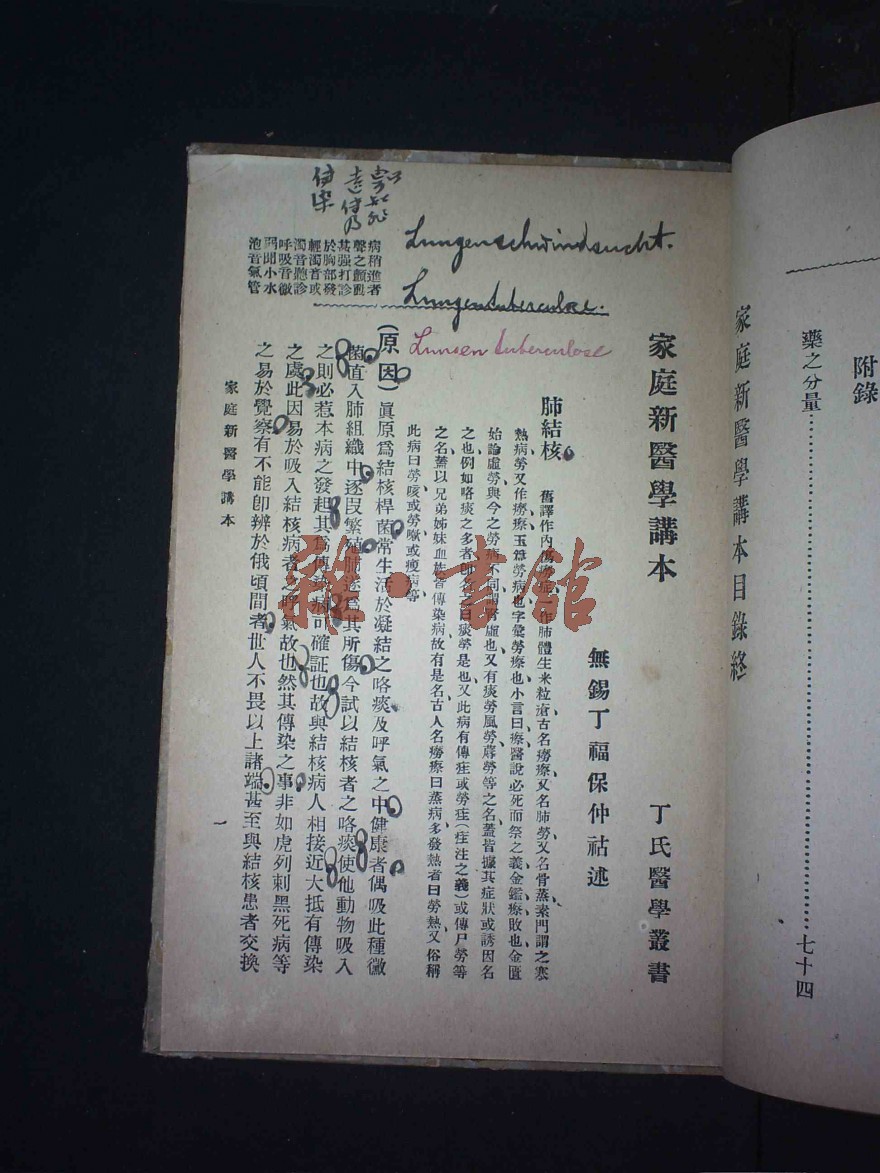 附錄
藥之分量⋯⋯七十四
家庭新醫學講本目錄終
Lungenschwindsucht.
Lungentuberculose.
Lungentuberculose
傳染
病稍進者
聲之顫動
甚强打診
於胸部發
輕濁音或
濁音聽診
呼吸音微
弱聞小水
泡音氣管
家庭新醫學講本 丁氏醫學叢書
無錫丁福保仲祜述
肺結核 舊譯作內傷癆症一作肺體生米粒瘡古名癆瘵又名肺勞又名骨蒸素門謂之寒
熱病勞又作癆瘵玉篇勞病也字彙勞瘵也小言曰瘵醫說必死而祭之義金鑑瘵敗也金匱
始論虛勞與今之勞病不同謂腎虛也又有痰勞風勞蓐勞等之名蓋皆據其症狀或誘因名
之也例如咯痰之多者即名之曰痰勞是也又此病有傳疰或勞疰(疰注之義)或傳尸勞等
之名蓋以兄弟姊妹血族皆傳染病故有是名古人名癆瘵曰蒸病多發熱者曰勞熱又俗稱
此病曰勞咳或勞嗽或瘦病等
(原因)眞原爲結核桿菌常生活於凝結之咯痰及呼氣之中健康者偶吸此種黴
菌直入肺組織中逐叚繁殖肺遂爲其所傷今試以結核者之咯痰使他動物吸入
之則必惹本病之發起其爲傳染病可確証也故與結核病人相接近大抵有傳染
之處此因易於吸入結核病者之呼氣故也然其傳染之事非如虎列刺黑死病等
之易於覺察有不能卽辨於俄頃間者世人不畏以上諸端甚至與結核患者交換
家庭新醫學講本
一
雜·書館